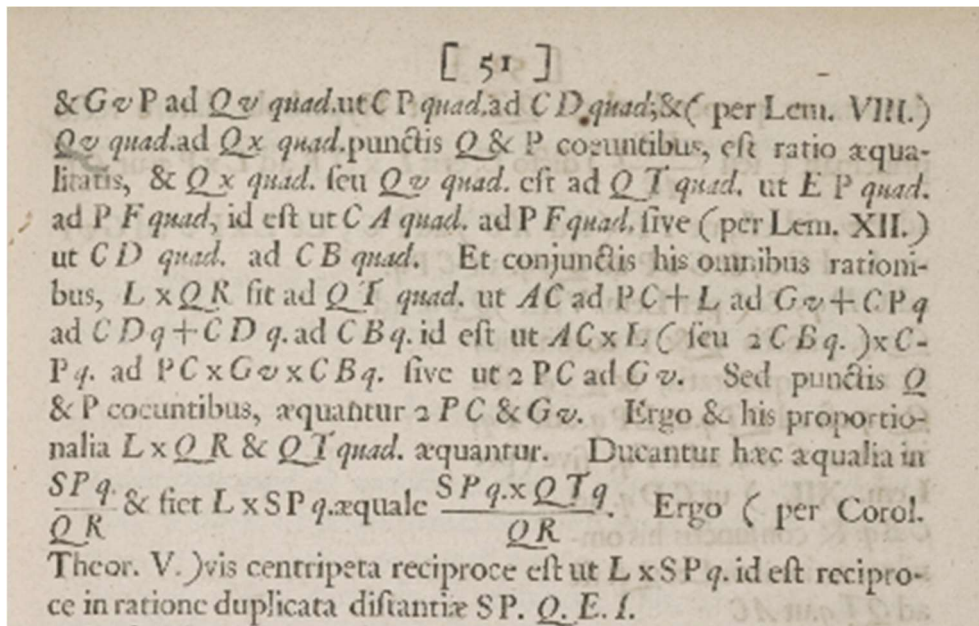 [ 51 ]
& G v P ad Q v quad. ut C P quad. ad C D quad; & ( per Lem. VIII. )
Q v quad. ad Q x quad. punctis Q & P coeuntibus, est ratio æqua-
litatis, & Q x quad. seu Q v quad. est ad Q T quad. ut E P quad.
ad P F quad, id est ut C A quad. ad P F quad. sive ( per Lem. XII. )
ut C D quad. ad C B quad. Et conjunctis his omnibus rationi-
bus, L x Q R fit ad Q T quad. ut A C ad P C + L ad G v + C P q
ad C D q + C D q. ad C B q. id est ut A C x L ( seu 2 C B q. ) x C-
P q. ad P C x G v x C B q. sive ut 2 P C ad G v. Sed punctis Q
& P coeuntibus, æquantur 2 P C & G v. Ergo & his proportio-
nalia L x Q R & Q T quad. æquantur. Ducantur hæc æqualia in
SP q. / Q R & fiet L x S P q. æquale S P q. x Q T q / Q R . Ergo ( per Corol.
Theor. V. ) vis centripeta reciproce est ut L x S P q. id est recipro-
ce in ratione duplicata distantiæ S P. Q. E. I.